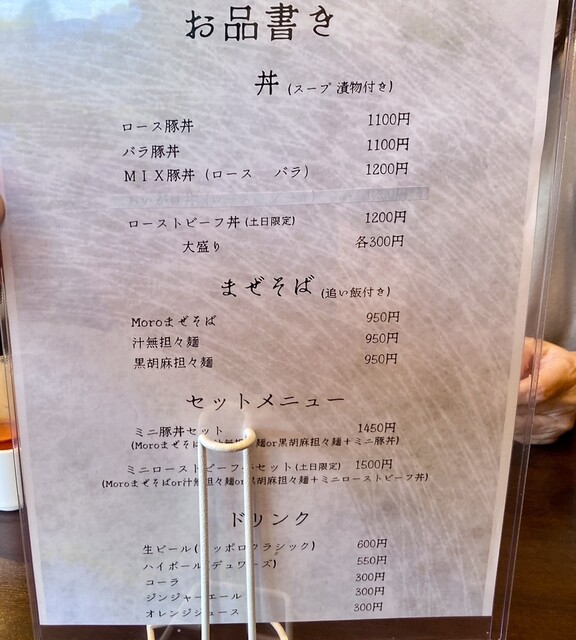 お品書き
丼 (スープ 漬物付き)
ロース豚丼 1100円
バラ豚丼 1100円
MIX豚丼 (ロース バラ) 1200円
ローストビーフ丼 (土日限定) 1200円
大盛り 各300円
まぜそば (追い飯付き)
Moroまぜそば 950円
汁無担々麺 950円
黒胡麻担々麺 950円
セットメニュー
ミニ豚丼セット 1450円
(Moroまぜそば 麺or黒胡麻担々麺+ミニ豚丼)
ミニローストビーフ セット (土日限定) 1500円
(Moroまぜそばor汁無 々麺or 胡麻担々麺+ミニローストビーフ丼)
ドリンク
生ビール( ッポロクラシック) 600円
ハイボール デュワーズ) 550円
コーラ 300円
ジンジャーエール 300円
オレンジジュース 300円